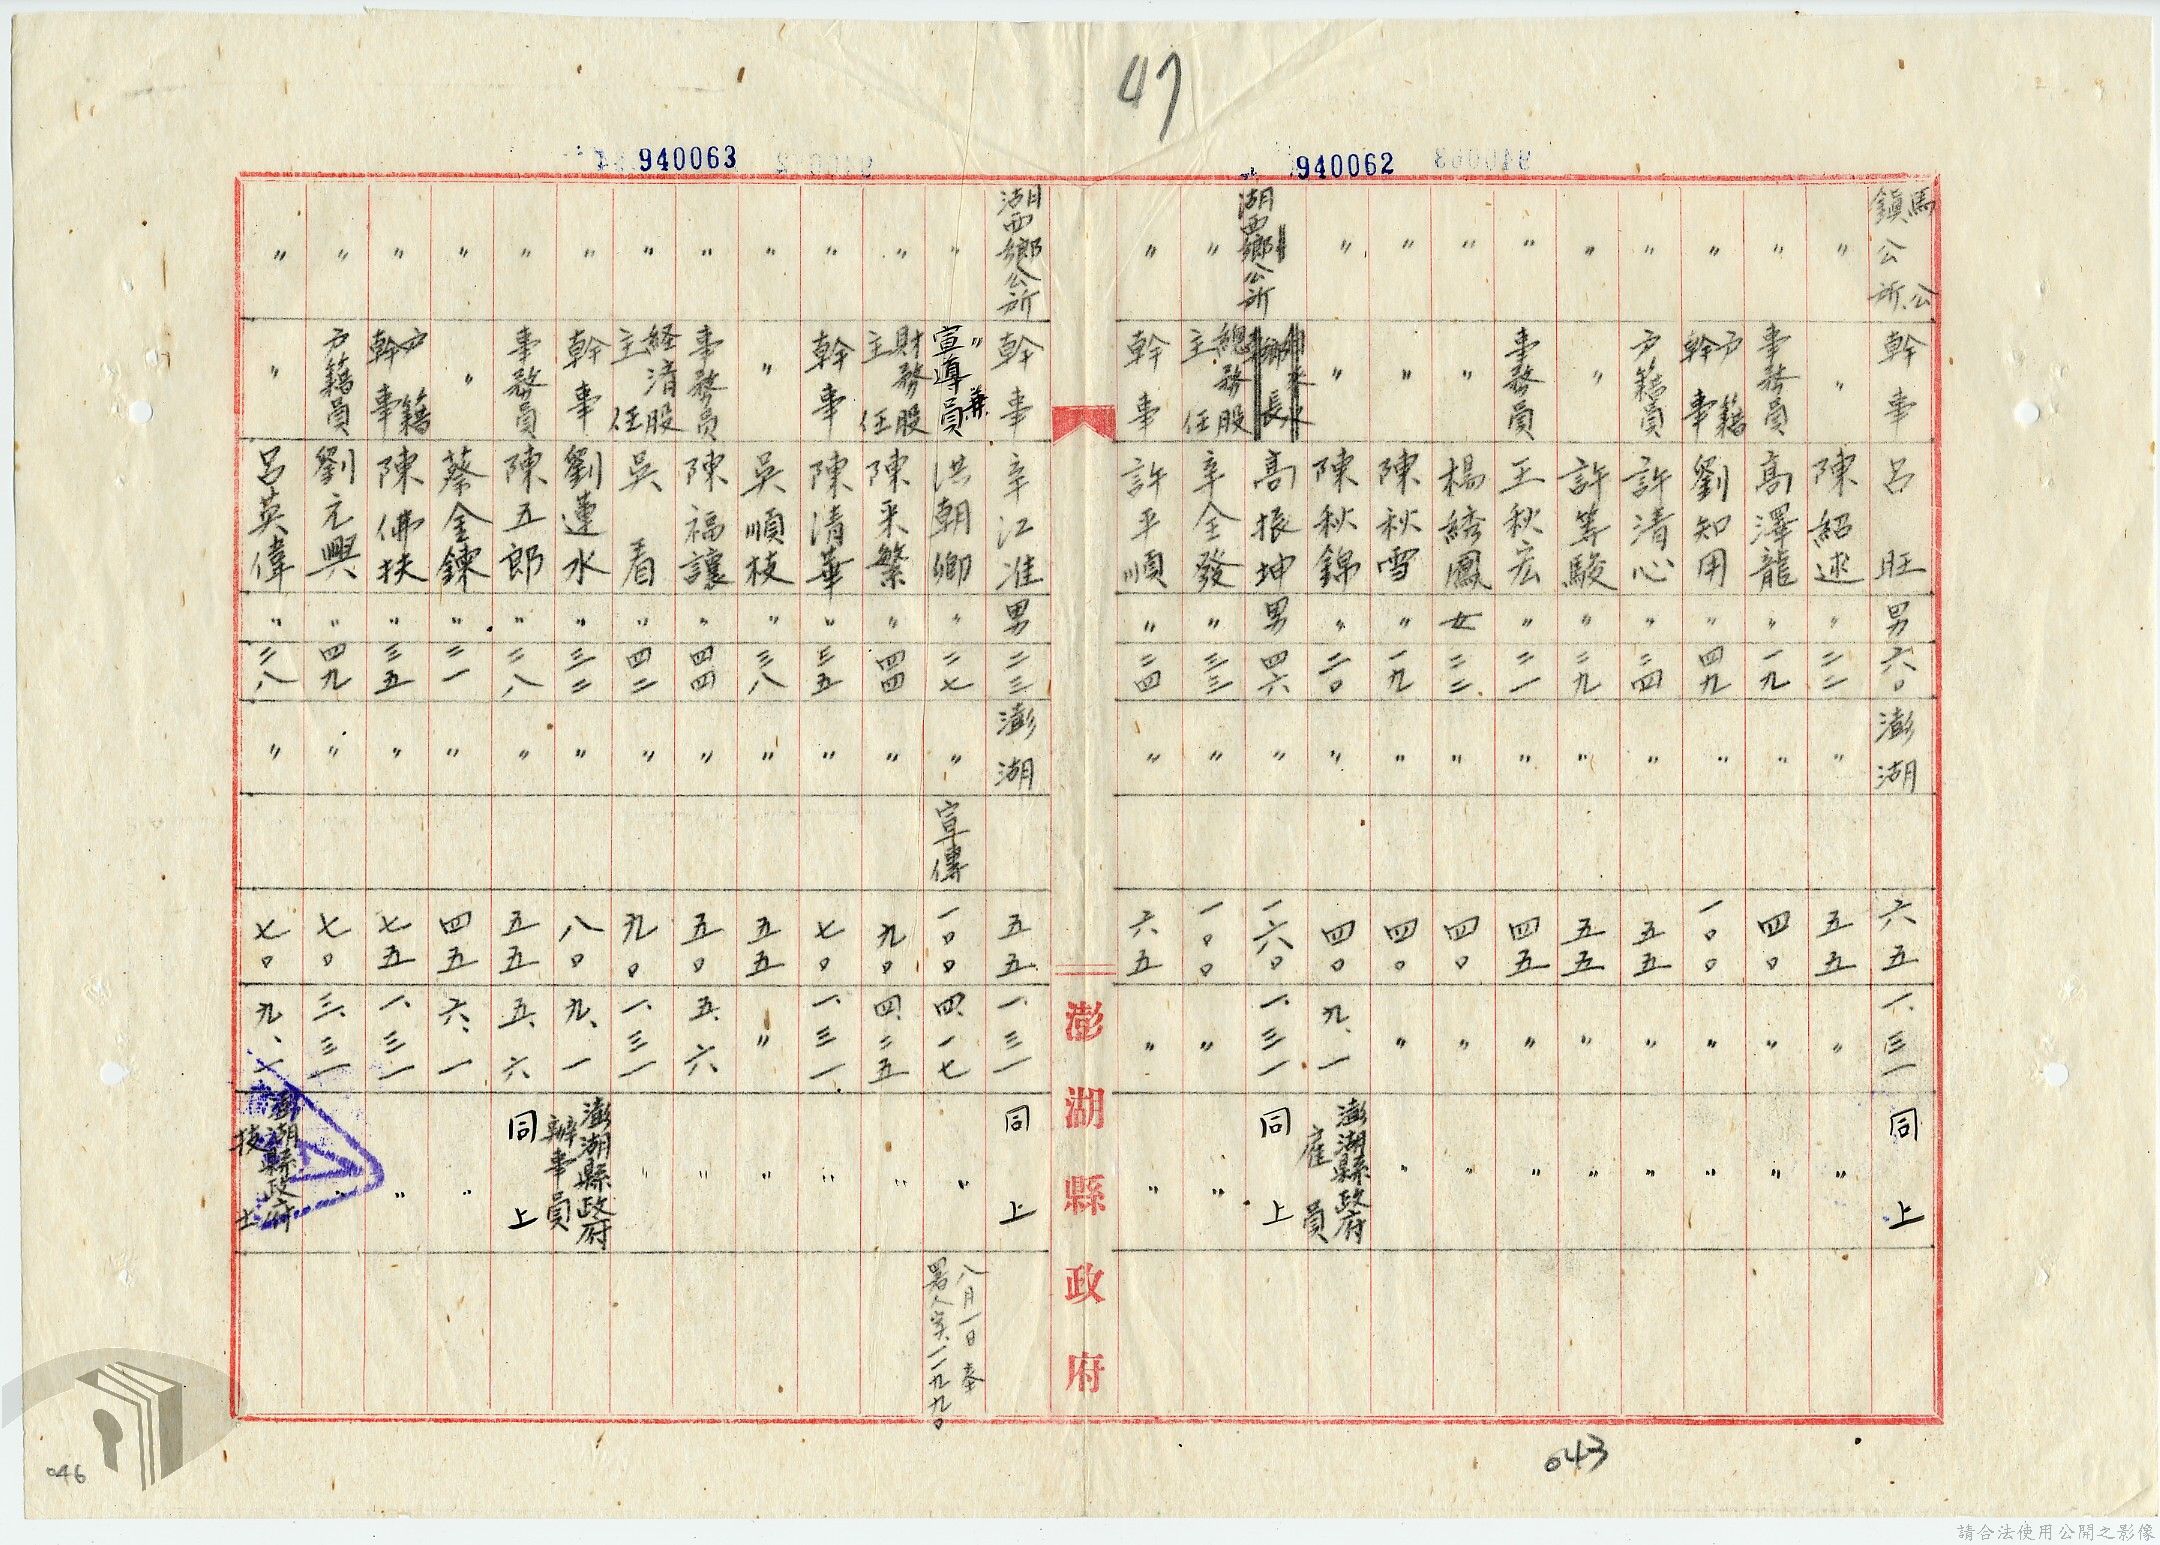 47
940062
940063
馬公鎮公所 幹事 呂旺 男 六〇 澎湖 六五 一、三一 同上
〃 〃 陳紹逑 〃 二二 〃 五五 〃 〃
〃 事務員 高澤龍 〃 一九 〃 四〇 〃 〃
〃 戶籍幹事 劉知用 〃 四九 〃 一〇〇 〃 〃
〃 戶籍員 許清心 〃 二四 〃 五五 〃 〃
〃 〃 許等駿 〃 二九 〃 五五 〃 〃
〃 事務員 王秋宏 〃 二一 〃 四五 〃 〃
〃 〃 楊綉鳳 女 二二 〃 四〇 〃 〃
〃 〃 陳秋雪 〃 一九 〃 四〇 〃 〃
〃 〃 陳秋錦 〃 二〇 〃 四〇 九、一 澎湖縣政府雇員
湖西鄉公所 鄉長 高振坤 男 四六 〃 一六〇 一、三一 同上
〃 總務股主任 辛全發 〃 三三 〃 一〇〇 〃 〃
〃 幹事 許平順 〃 二四 〃 六五 〃 〃
澎湖縣政府
湖西鄉公所 幹事 辛江准 男 二三 澎湖 五五 一、三一 同上
〃 〃兼宣導員 洪朝鄉 〃 二七 〃 宣傳 一〇〇 四、一七 〃 八月一日奉署人實一一九九〇
〃 財務股主任 陳采繁 〃 四四 〃 九〇 四、二五 〃
〃 幹事 陳清華 〃 三五 〃 七〇 一、三一 〃
〃 〃 吳順枝 〃 三八 〃 五五 〃 〃
〃 事務員 陳福讓 〃 四四 〃 五〇 五、六 〃
〃 經清股主任 吳看 〃 四二 〃 九〇 一、三一 〃
〃 幹事 劉連水 〃 三二 〃 八〇 九、一 澎湖縣政府辦事員
〃 事務員 陳五郎 〃 二八 〃 五五 五、六 同上
〃 〃 蔡金鍊 〃 二一 〃 四五 六、一 〃
〃 戶籍幹事 陳佛扶 〃 三五 〃 七五 一、三一 〃
〃 戶籍員 劉元興 〃 四九 〃 七〇 三、三一 〃
〃 〃 呂英偉 〃 二八 〃 七〇 九、一 澎湖縣政府技士
043
046
請合法使用公開之影像